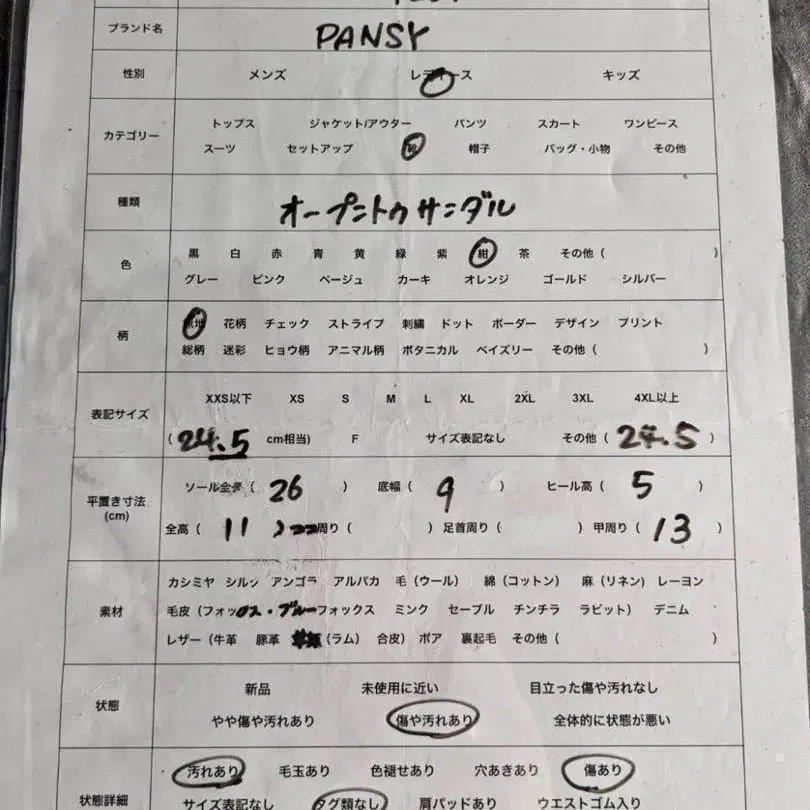 ブランド名 PANSY
性別 メンズ レディース キッズ
カテゴリー トップス ジャケット/アウター パンツ スカート ワンピース
スーツ セットアップ 靴 帽子 バッグ・小物 その他
種類 オープントゥサンダル
色 黒 白 赤 青 黄 緑 紫 紺 茶 その他( )
グレー ピンク ベージュ カーキ オレンジ ゴールド シルバー
柄 無地 花柄 チェック ストライプ 刺繍 ドット ボーダー デザイン プリント
総柄 迷彩 ヒョウ柄 アニマル柄 ボタニカル ペイズリー その他( )
表記サイズ XXS以下 XS S M L XL 2XL 3XL 4XL以上
(24.5 cm相当) F サイズ表記なし その他(24.5)
平置き寸法 (cm) ソール全長(26) 底幅(9) ヒール高(5)
全高(11) 周り( ) 足首周り( ) 甲周り(13)
素材 カシミヤ シルク アンゴラ アルパカ 毛(ウール) 綿(コットン) 麻(リネン) レーヨン
毛皮(フォックス・ブルーフォックス ミンク セーブル チンチラ ラビット) デニム
レザー(牛革 豚革 (ラム) 合皮) ボア 裏起毛 その他( )
状態 新品 未使用に近い 目立った傷や汚れなし
やや傷や汚れあり 傷や汚れあり 全体的に状態が悪い
状態詳細 汚れあり 毛玉あり 色褪せあり 穴あきあり 傷あり
サイズ表記なし タグ類なし 肩パッドあり ウエストゴム入り